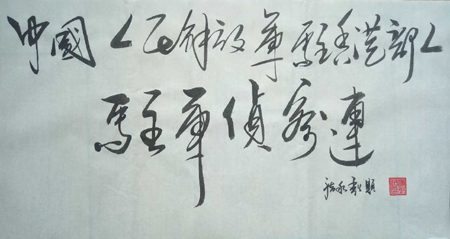 中國人民解放軍駐香港部隊
駐軍偵察連